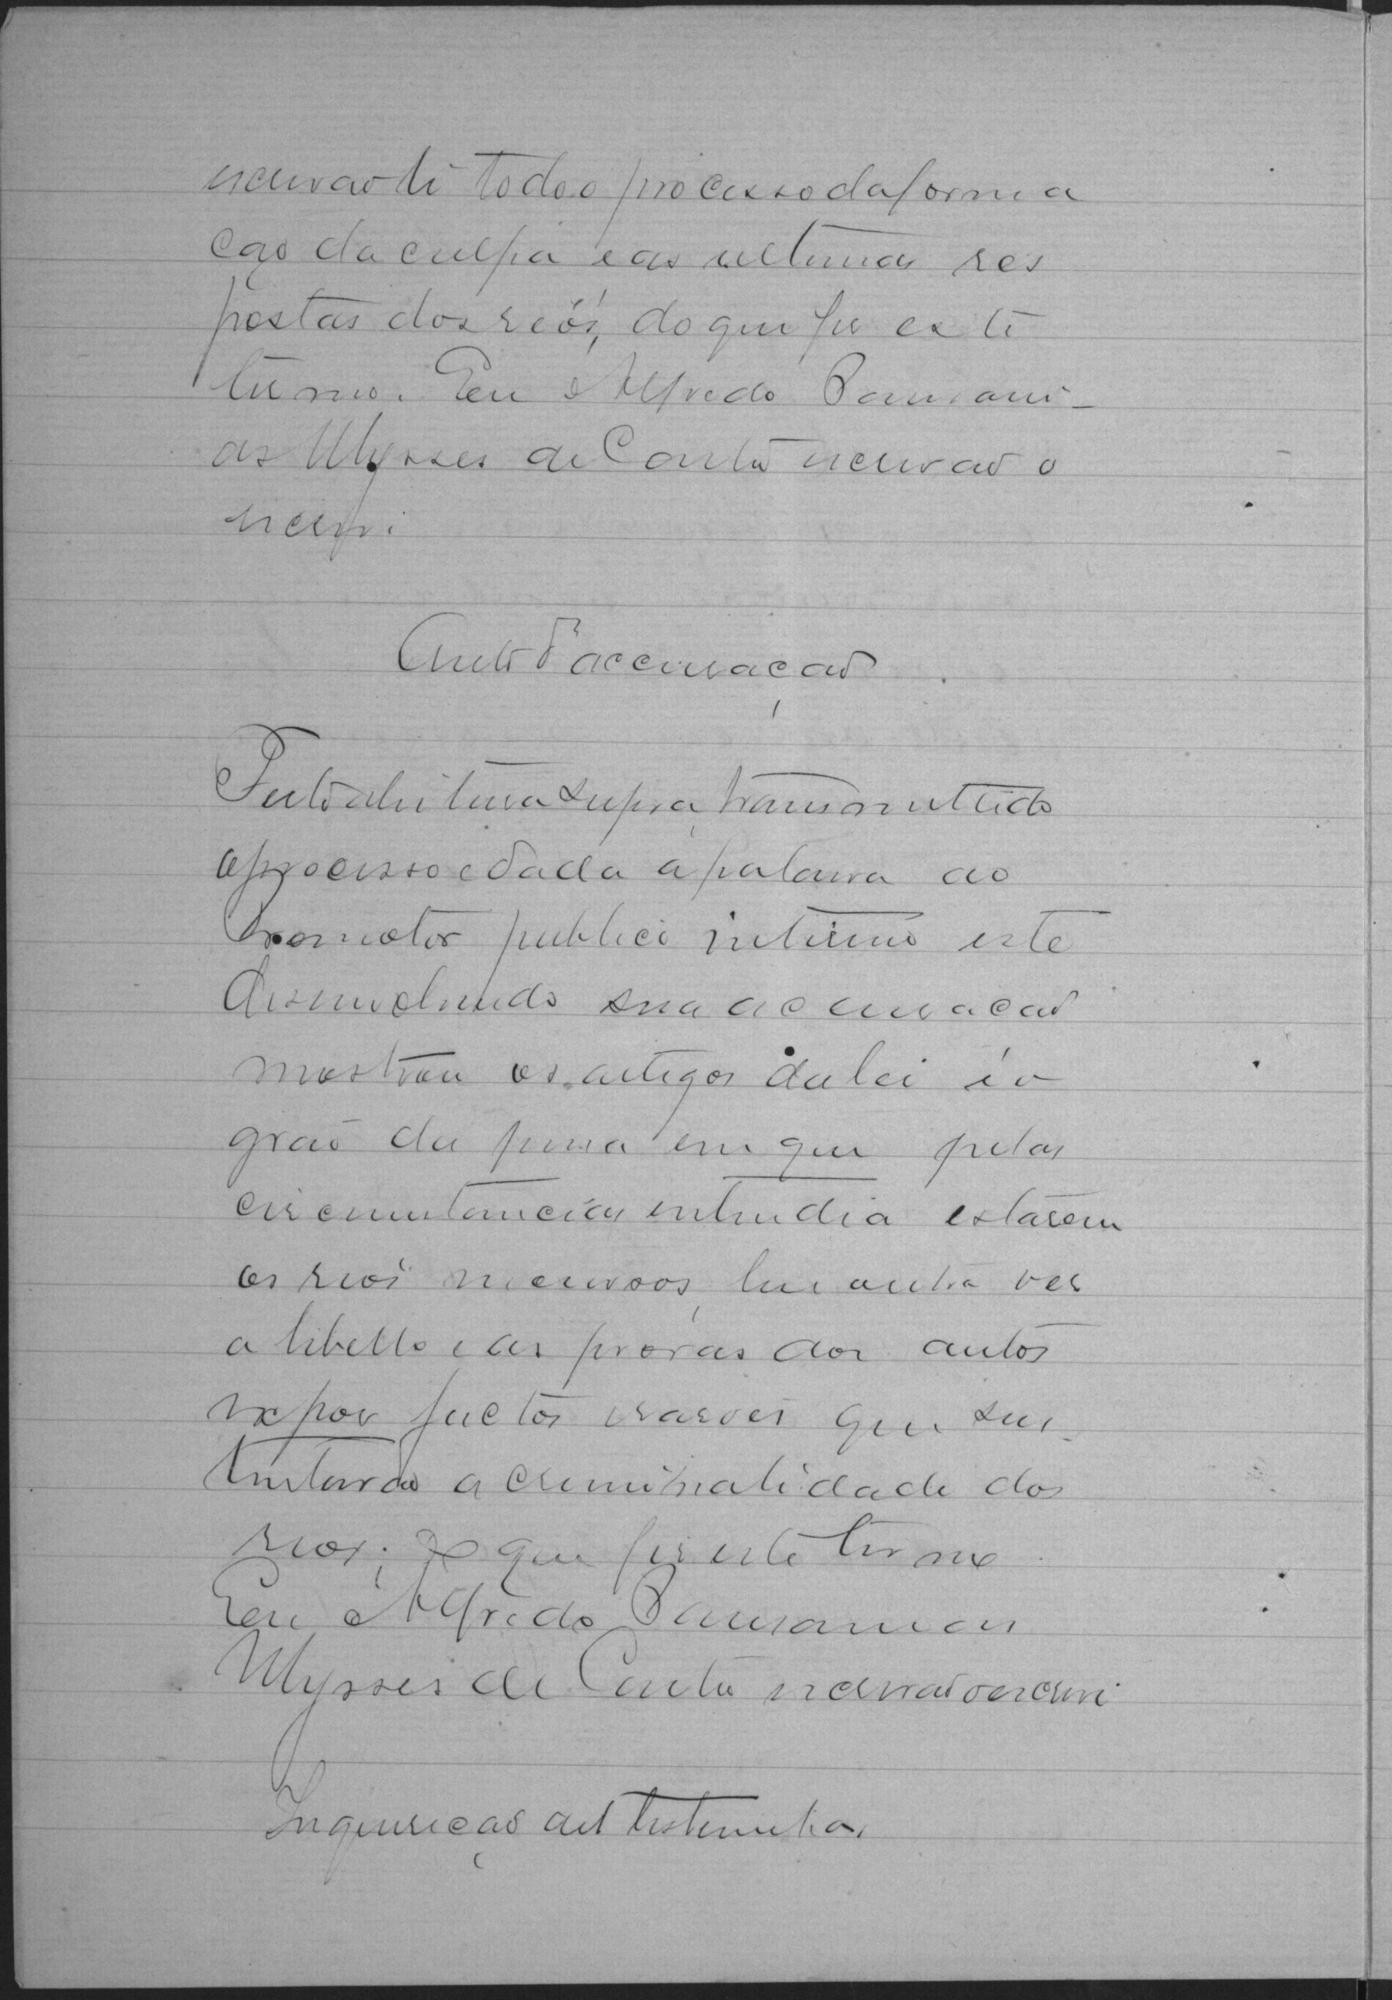 escrivão li todo o processo da forma
ção da culpa e as ultimas res
postas dos reós, do que fiz este
termo. Eu Alfredo Pausani-
as Ulysses de Couto escrivão o
escrevi.
Auto d'accusação.
Feito a leitura supra, transmettido
o processo e dada a palavra ao
Promotor publico interino este
desenvolvendo sua accusação
mostrou os artigos da lei é o
gráo da pena em que pelas
circumstancias entendia estarem
os reós incursos, leu outra vez
o libello e as provas dos autos
expor factos e rasões que sus-
tentarão a criminalidade dos
reos; do que fiz este termo.
Eu Alfredo Pausanias
Ulysses de Couto escrivão o escrevi
Inquirição das testemunhas